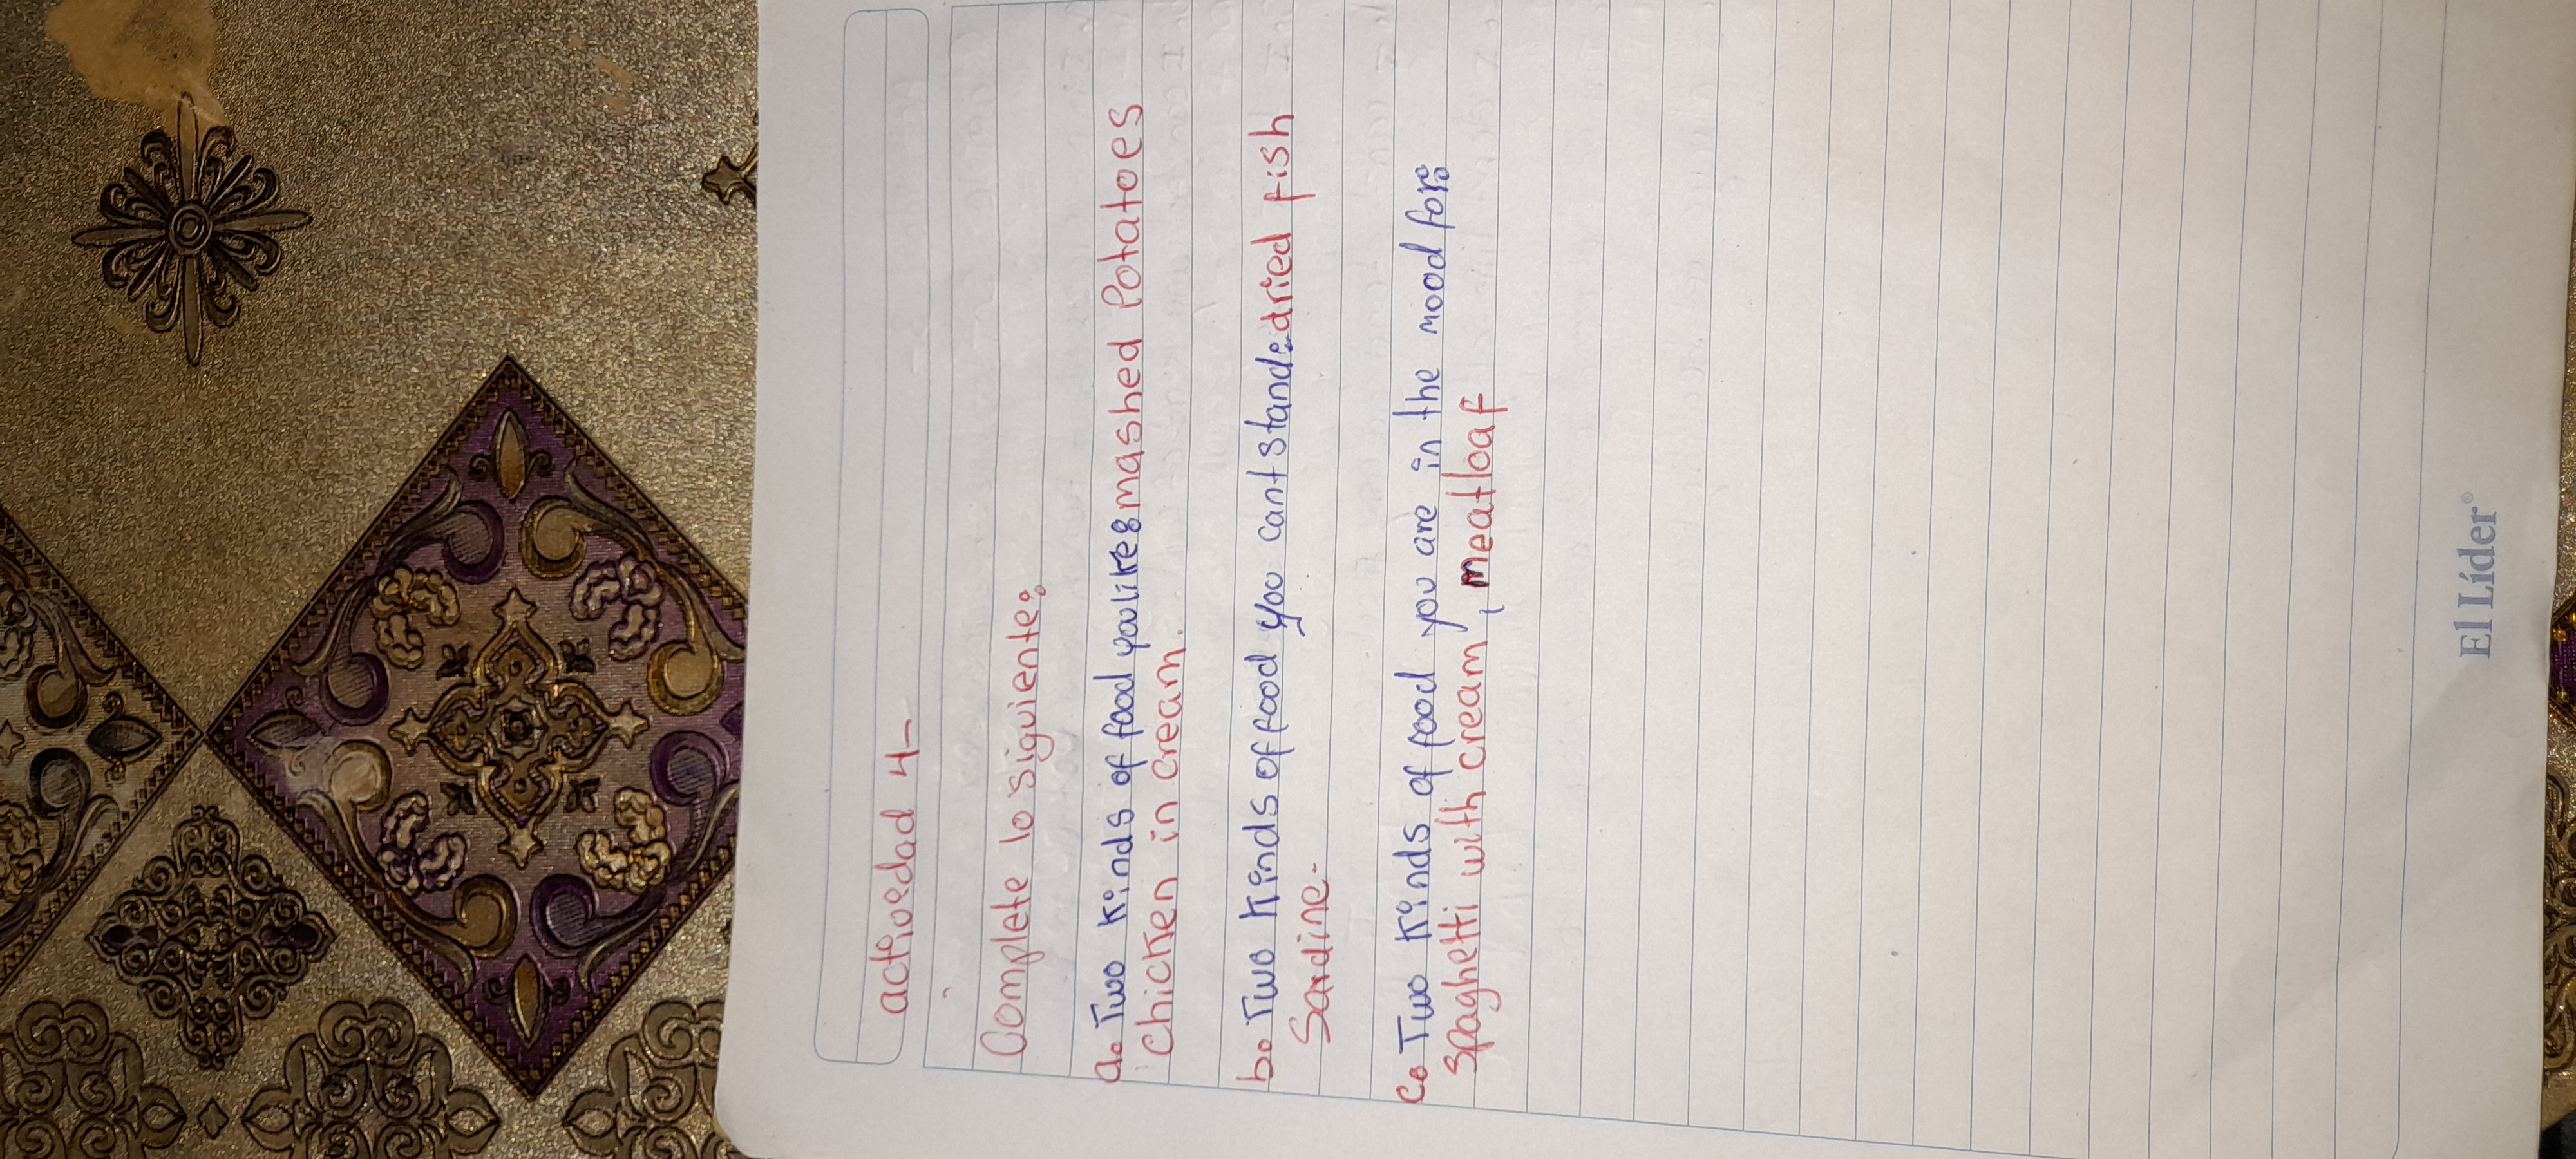 actividad 4-
Complete lo siguiente:
a. Two kinds of food you like: mashed Potatoes
chicken in cream.
b. Two kinds of food you cant stand: dried fish
Sardine.
c. Two kinds of food you are in the mood for:
spaghetti with cream, meatloaf
El Líder®